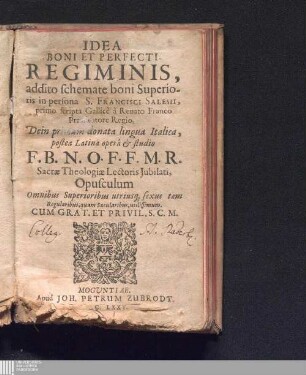 IDEA
BONI ET PERFECTI
REGIMINIS,
addito schemate boni Superio-
ris in persona S. FRANCISCI SALESII,
primo scripta Gallicè à Renato Franco
Regio,
Dein donata lingua Italica,
postea Latina operâ & studio
F. B. N. O. F. F. M. R.
Sacræ Theologiæ Lectoris Jubilati,
Opusculum
Omnibus Superioribus utriusq; sexus tam
Regularibus, quam Sæcularibus, utilissimum.
CUM GRAT. ET PRIVIL. S. C. M.
Colleg.
MOGUNTIAE,
Apud JOH. PETRUM ZUBRODT.